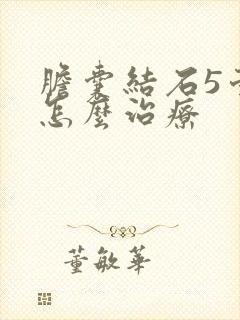 膽囊結石5
怎麼治療
董敏華